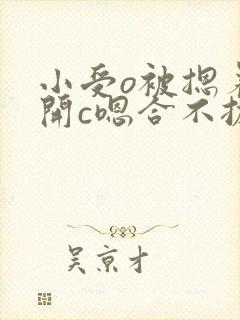 小受o被摁着
開c嗯合不拢
吴京才